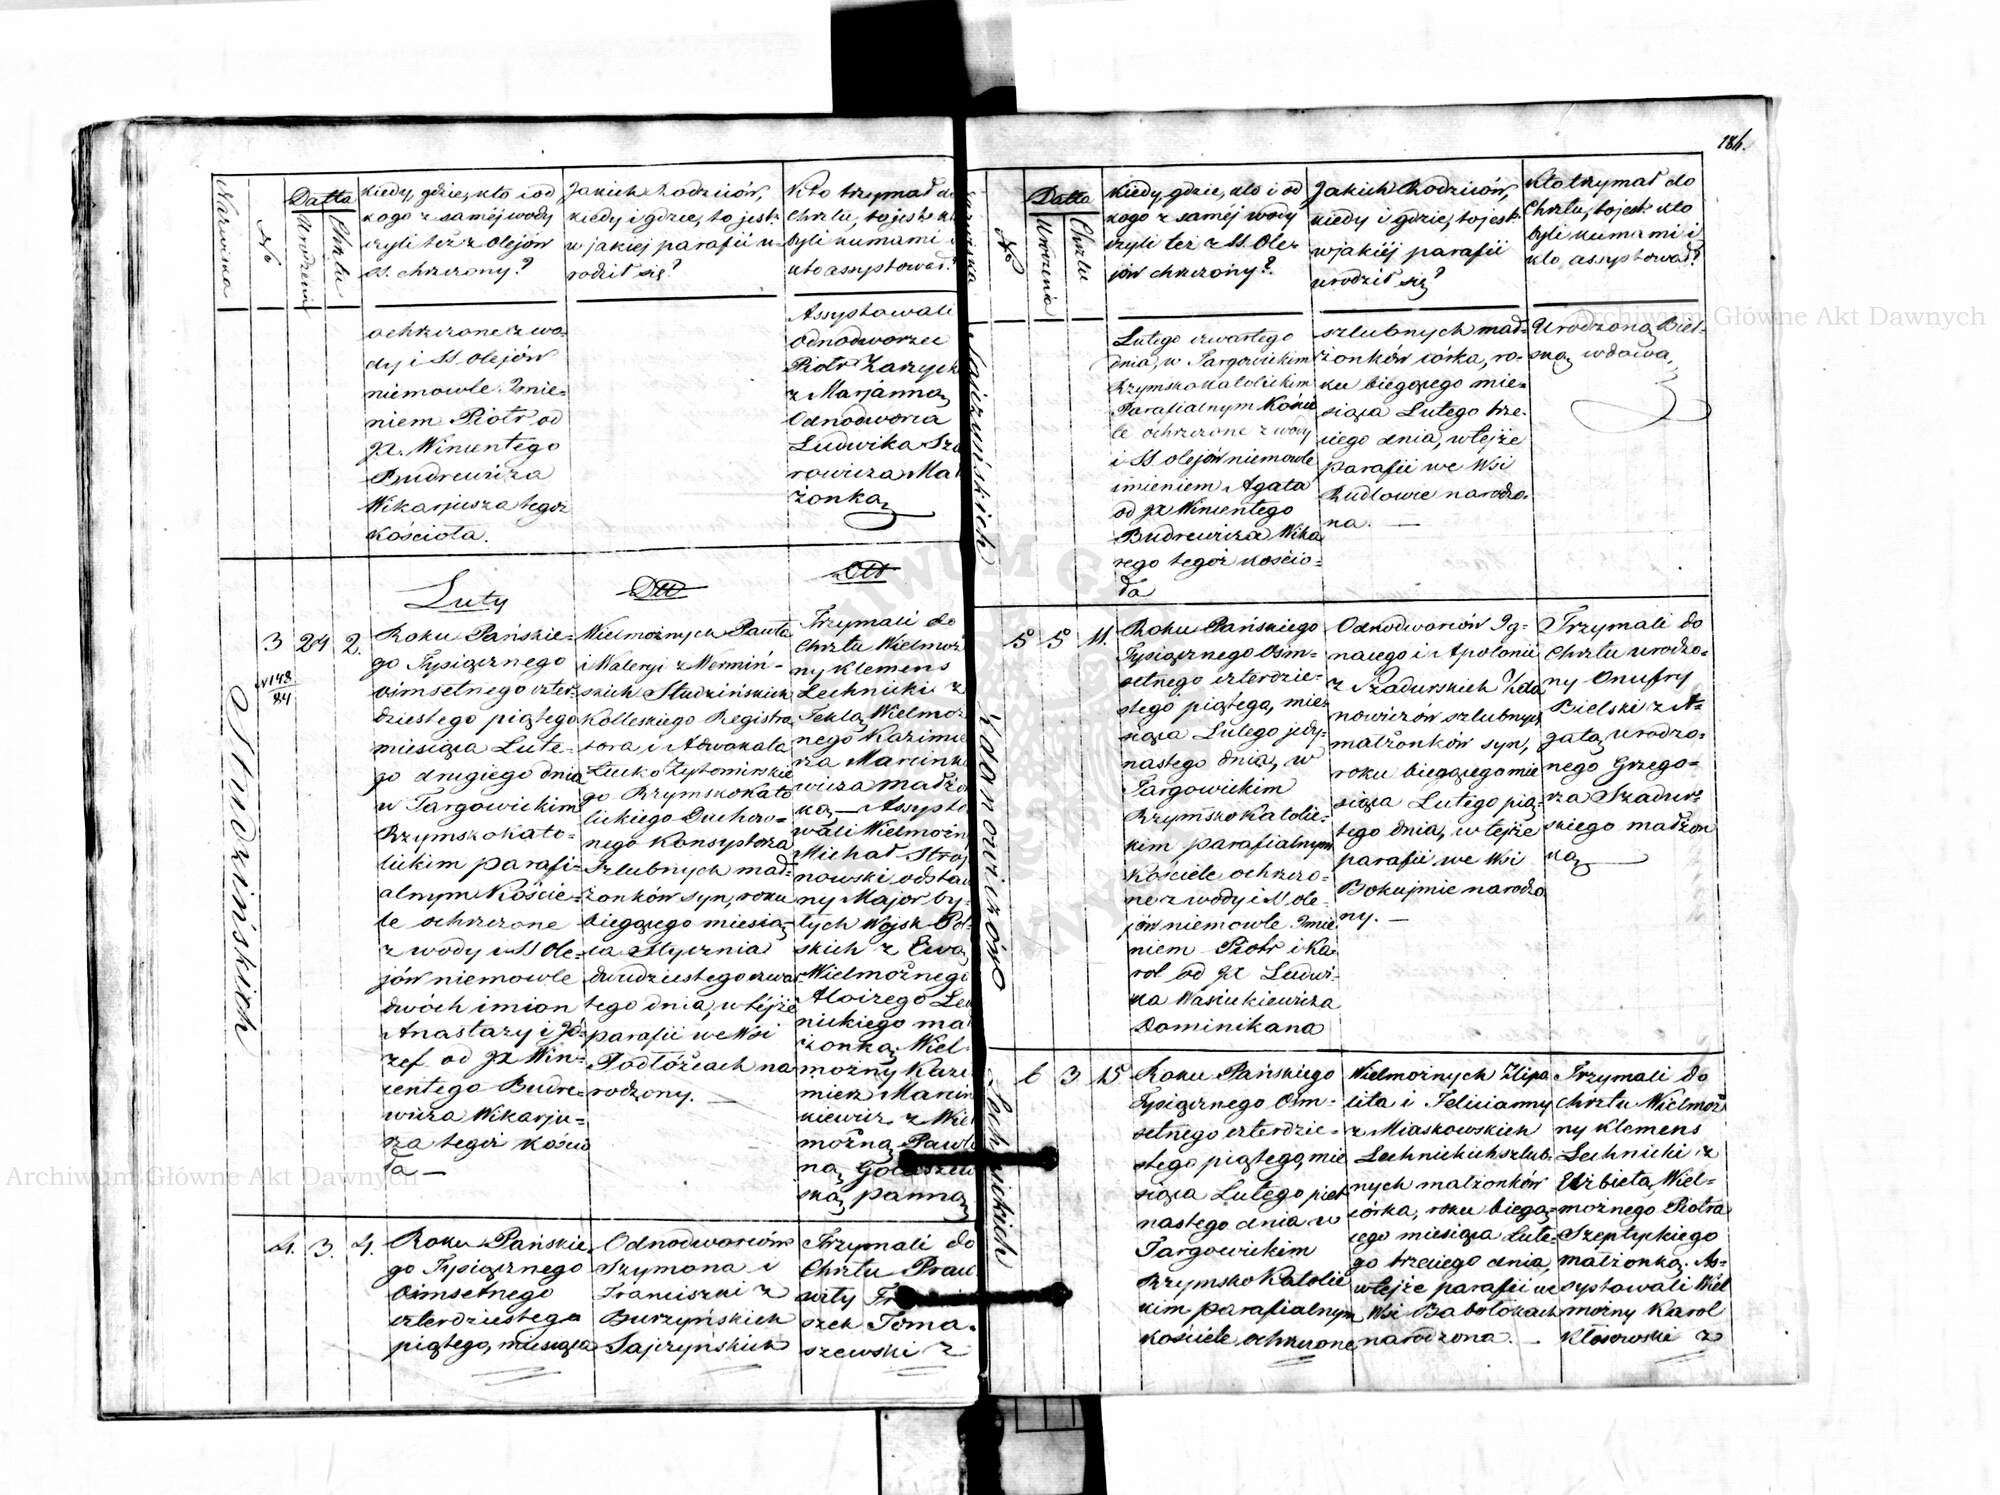 184.
Nazwiska
№
Datta
Urodzenia
Chrztu
Kiedy, gdzie, kto i od
kogo z saméj wody
czyli też z Olejów
SS. chrzczony?
Jakich Rodziców,
kiedy i gdzie, to jest:
w jakiej parafii u-
rodził się?
Kto trzymał do
Chrztu, to jest: kto
byli kumami i
kto assystował?
ochrzczone z wo-
dy i SS. olejów
niemowle Imie-
niem Piotr od
JX. Wincentego
Budrewicza
Wikarjusza tegoż
Kościoła.
Assystowali
Odnodworzec
Piotr Zarzycki
z Marjanną
Odnodworca
Ludwika
Małżonką
Luty
Studzińskich
3
24
2.
N 148
84
Roku Pańskie-
go Tysiącznego
ośmsetnego czter-
dziestego piątego
miesiąca Lute-
go drugiego dnia
w Targowickim
Rzymskokato-
lickim parafi-
alnym Koście-
le ochrzczone
z wody i SS Ole-
jów niemowle
dwóch imion
Anastazy i Jó-
zef od JX Win-
centego Budre-
wicza Wikarju-
sza tegoż Kościo
ła —
Wielmożnych Pawła
i Waleryi z Wermiń-
skich Studzińskich
Kolleskiego Registra
tora i Adwokata
Łucko Żytomirskie
go Rzymskokato
lickiego Duchow-
nego Konsystorza
szlubnych mał-
żonków syn, roku
bieącego miesią-
ca Stycznia
dwudziestego czwar
tego dnia, w tejże
parafii we Wsi
Podłóżcach na
rodzony. —
Trzymali do
Chrztu Wielmoż
ny Klemens
Lechnicki z
Teklą Wielmoż
nego Kazimie
rza Marcinke
wicza małżon
ką — Assysto
wali Wielmożny
Michał Stroj
nowski odstaw
ny Major by-
łych Wojsk Pol-
skich z Ewą
Wielmożnego
Aloizego Lech
nickiego mał
żonką, Wiel-
możny Kazi
mierz Marcin
kiewicz z Wiel
możną Pawli
ną
ską panną
4.
3.
4.
Roku Pańskie
go Tysiącznego
Ośmsetnego
czterdziestego
piątego, miesiąca
Odnodworców
Szymona i
Franciszki z
Burzyńskich
Sajczyńskich
Trzymali do
Chrztu Prac
owity Franci
szek Toma-
szewski z
Nazwiska
№
Datta
Urodzenia
Chrztu
Kiedy, gdzie, kto i od
kogo z saméj wody
czyli też z SS. Ole-
jów chrzczony?
Jakich Rodziców,
kiedy i gdzie, to jest:
w jakiéj parafii
urodził się?
Kto trzymał do
Chrztu, to jest: kto
byli kumami i
kto assystował?
Sajczyńskich
Lutego czwartego
dnia, w Targowickim
Rzymskokatolickim
Parafialnym Koście
le ochrzczone z wody
i SS olejów niemowle
imieniem Agata
od JX Wincentego
Budrewicza Wika
rego tegoż kościo-
ła
szlubnych mał-
żonków córka, ro-
ku bieżącego mie-
siąca Lutego trze-
ciego dnia, w tejże
parafii we Wsi
Rudlowie narodzo-
na. —
Urodzoną Biel-
ską wdową,
Zdanowiczów
5
5
11.
Roku Pańskiego
Tysiącznego Ośm-
setnego czterdzie-
stego piątego, mie-
siąca Lutego jedy-
nastego dnia, w
Targowickim
Rzymsko Katolic-
kim parafialnym
Kościele ochrzczo-
ne z wody i SS ole-
jów niemowle Imie
niem Piotr i Ka-
rol od JX Ludwi-
ka Wasiukiewicza
Dominikana
Odnodworców Ig-
nacego i Apolonii
z Szadurskich Zda
nowiczów szlubnych
małżonków syn,
roku bieącego mie
siąca Lutego pią-
tego dnia, w tejże
parafii we Wsi
Bokujmie narodzo
ny. —
Trzymali do
Chrztu urodzo-
ny Onufry
Bielski z A-
gatą urodzo-
nego Grzego-
rza Szadur-
skiego małżon
ką —
Lechnickich
6
3
15
Roku Pańskiego
Tysiącznego Ośm-
setnego czterdzie-
stego piątego, mie
siąca Lutego piet
nastego dnia w
Targowickim
Rzymsko Katolic
kim parafialnym
Kościele ochrzczone
Wielmożnych Hipo
lita i Felicianny
z Miaskowskich
Lechnickich szlub-
nych małżonków
córka, roku bieżą-
cego miesiąca Lute-
go trzeciego dnia,
w tejże parafii we
Wsi Babołokach
narodzona. —
Trzymali do
Chrztu Wielmoż
ny Klemens
Lechnicki z
Elżbietą, Wiel-
możnego Piotra
Szeptyckiego
małżonką. As-
systowali Wiel
możny Karol
Kłosowski z
Archiwum Główne Akt Dawnych
Archiwum Główne Akt Dawnych